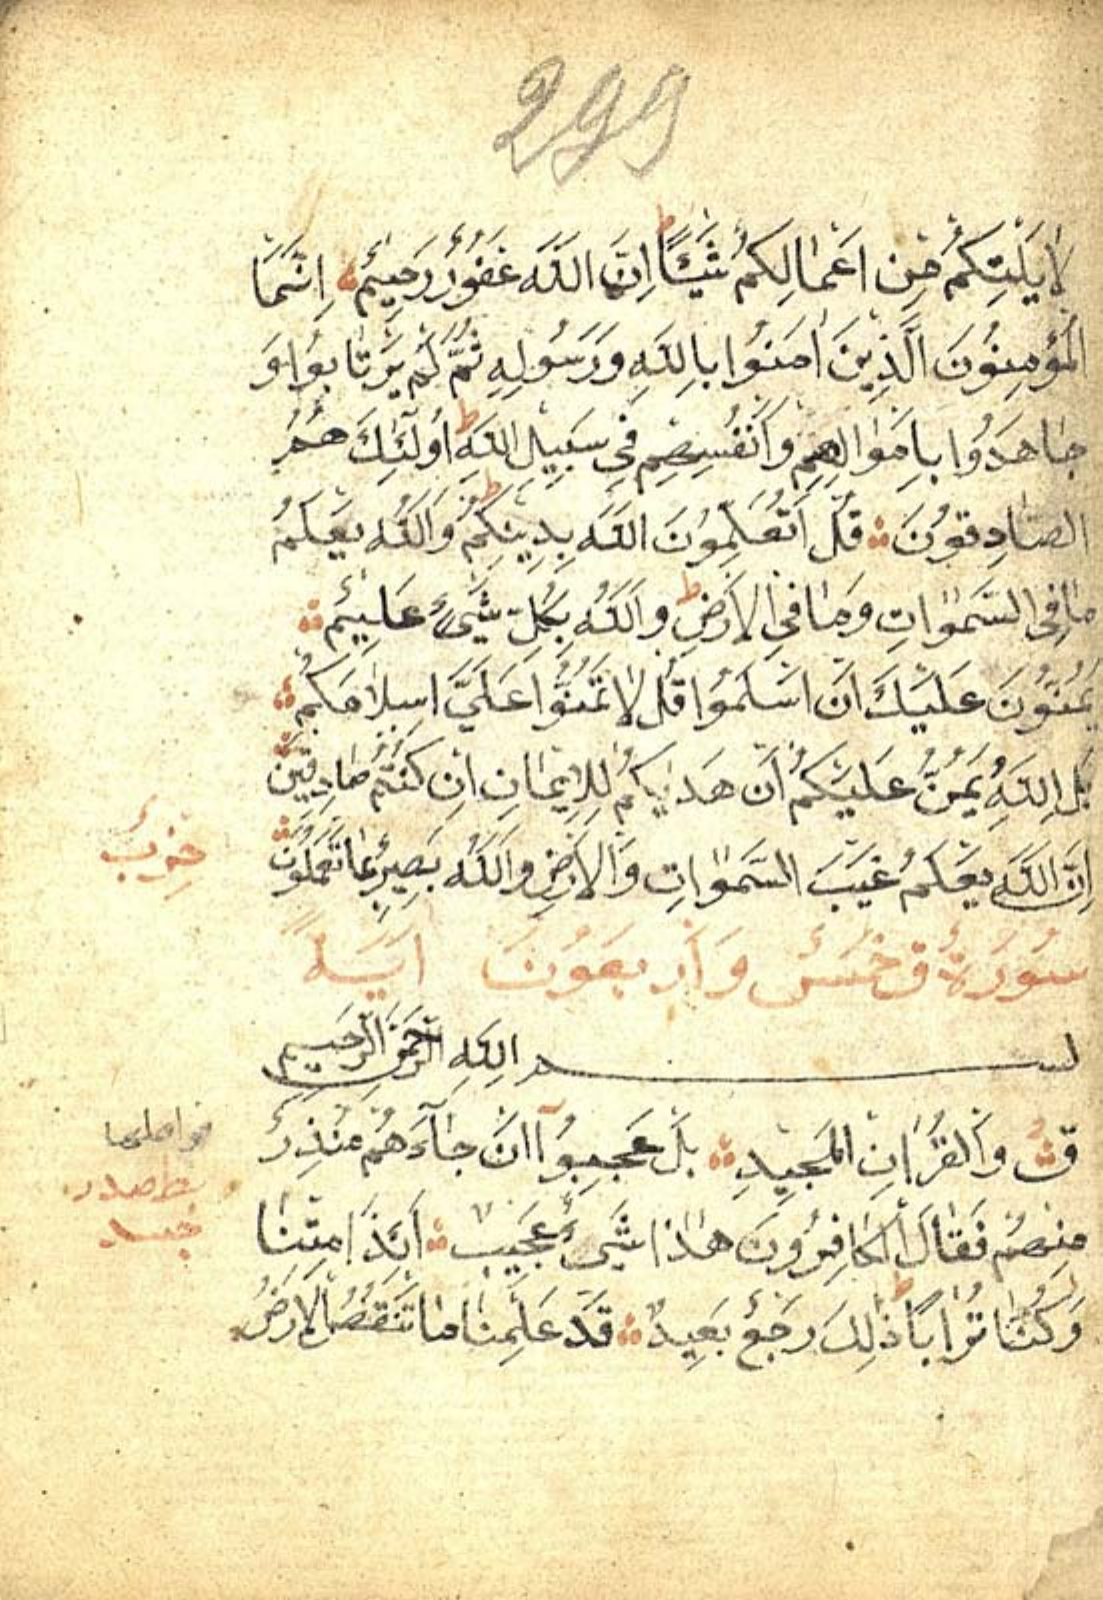 299
لَا يَلِتْكُمْ مِنْ اَعْمَالِكُمْ شَيْـًٔا ط اِنَّ اللّٰهَ غَفُوْرٌ رَحِيْمٌ اِنَّمَا
الْمُؤْمِنُونَ الَّذِينَ اٰمَنُوا بِاللّٰهِ وَرَسُولِهِ ثُمَّ لَمْ يَرْتَابُوا وَ
جَاهَدُوا بِاَمْوَالِهِمْ وَاَنْفُسِهِمْ فِي سَبِيلِ اللّٰهِ ط اُولٰٓئِكَ هُمُ
الصَّادِقُونَ قُلْ اَتُعَلِّمُونَ اللّٰهَ بِدِينِكُمْ ط وَاللّٰهُ يَعْلَمُ
مَا فِي السَّمٰوَاتِ وَمَا فِي الْاَرْضِ ط وَاللّٰهُ بِكُلِّ شَيْءٍ عَلِيْمٌ
يَمُنُّونَ عَلَيْكَ اَنْ اَسْلَمُوا قُلْ لَا تَمُنُّوا عَلَيَّ اِسْلَامَكُمْ
بَلِ اللّٰهُ يَمُنُّ عَلَيْكُمْ اَنْ هَدٰيكُمْ لِلْاِيمَانِ اِنْ كُنْتُمْ صَادِقِينَ
اِنَّ اللّٰهَ يَعْلَمُ غَيْبَ السَّمٰوَاتِ وَالْاَرْضِ وَاللّٰهُ بَصِيرٌ بِمَا تَعْمَلُونَ
حِزْبٌ
سُورَةُ ق خَمْسٌ وَاَرْبَعُونَ اٰيَةً
بسم اللّٰهِ الرَّحْمٰنِ الرَّحِيمِ
ق وَالْقُرْاٰنِ الْمَجِيدِ بَلْ عَجِبُوٓا اَنْ جَآءَهُمْ مُنْذِرٌ
فواصلها
مِنْهُمْ فَقَالَ الْكَافِرُونَ هٰذَا شَيْءٌ عَجِيبٌ اَئِذَا مِتْنَا
وَكُنَّا تُرَابًا ط ذٰلِكَ رَجْعٌ بَعِيدٌ قَدْ عَلِمْنَا مَا تَنْقُصُ الْاَرْضُ